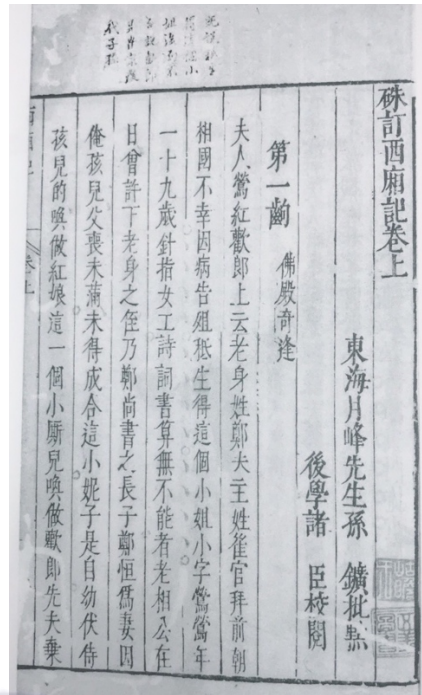 硃訂西廂記卷上
東海月峰先生孫 鑛批點
後學諸 臣校閱
第一齣 佛殿奇逢
夫人鶯紅歡郎上云老身姓鄭夫主姓崔官拜前朝
相國不幸因病告殂秪生得這個小姐小字鶯鶯年
一十九歲針指女工詩詞書算無不能者老相公在
日曾許下老身之侄乃鄭尚書之長子鄭恒爲妻因
俺孩兒父喪未滿未得成合這小妮子是自幼伏侍
孩兒的喚做紅娘這一個小厮兒喚做歡郎先夫棄
卷上